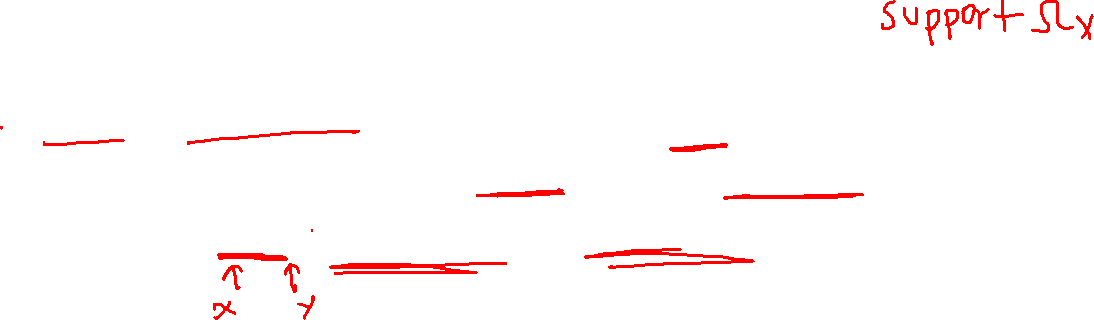 support Ω_X
↑ ↑
x Y